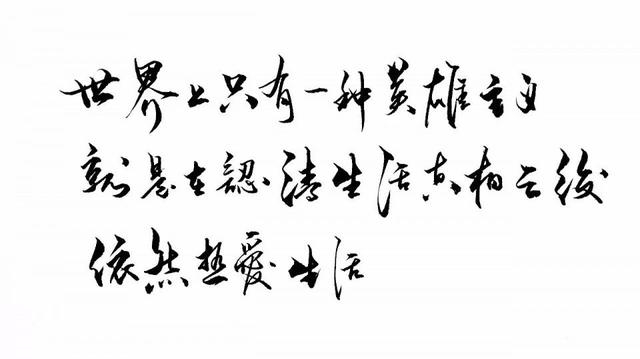 世界上只有一种英雄主义
就是在認清生活真相之後
依然热愛生活